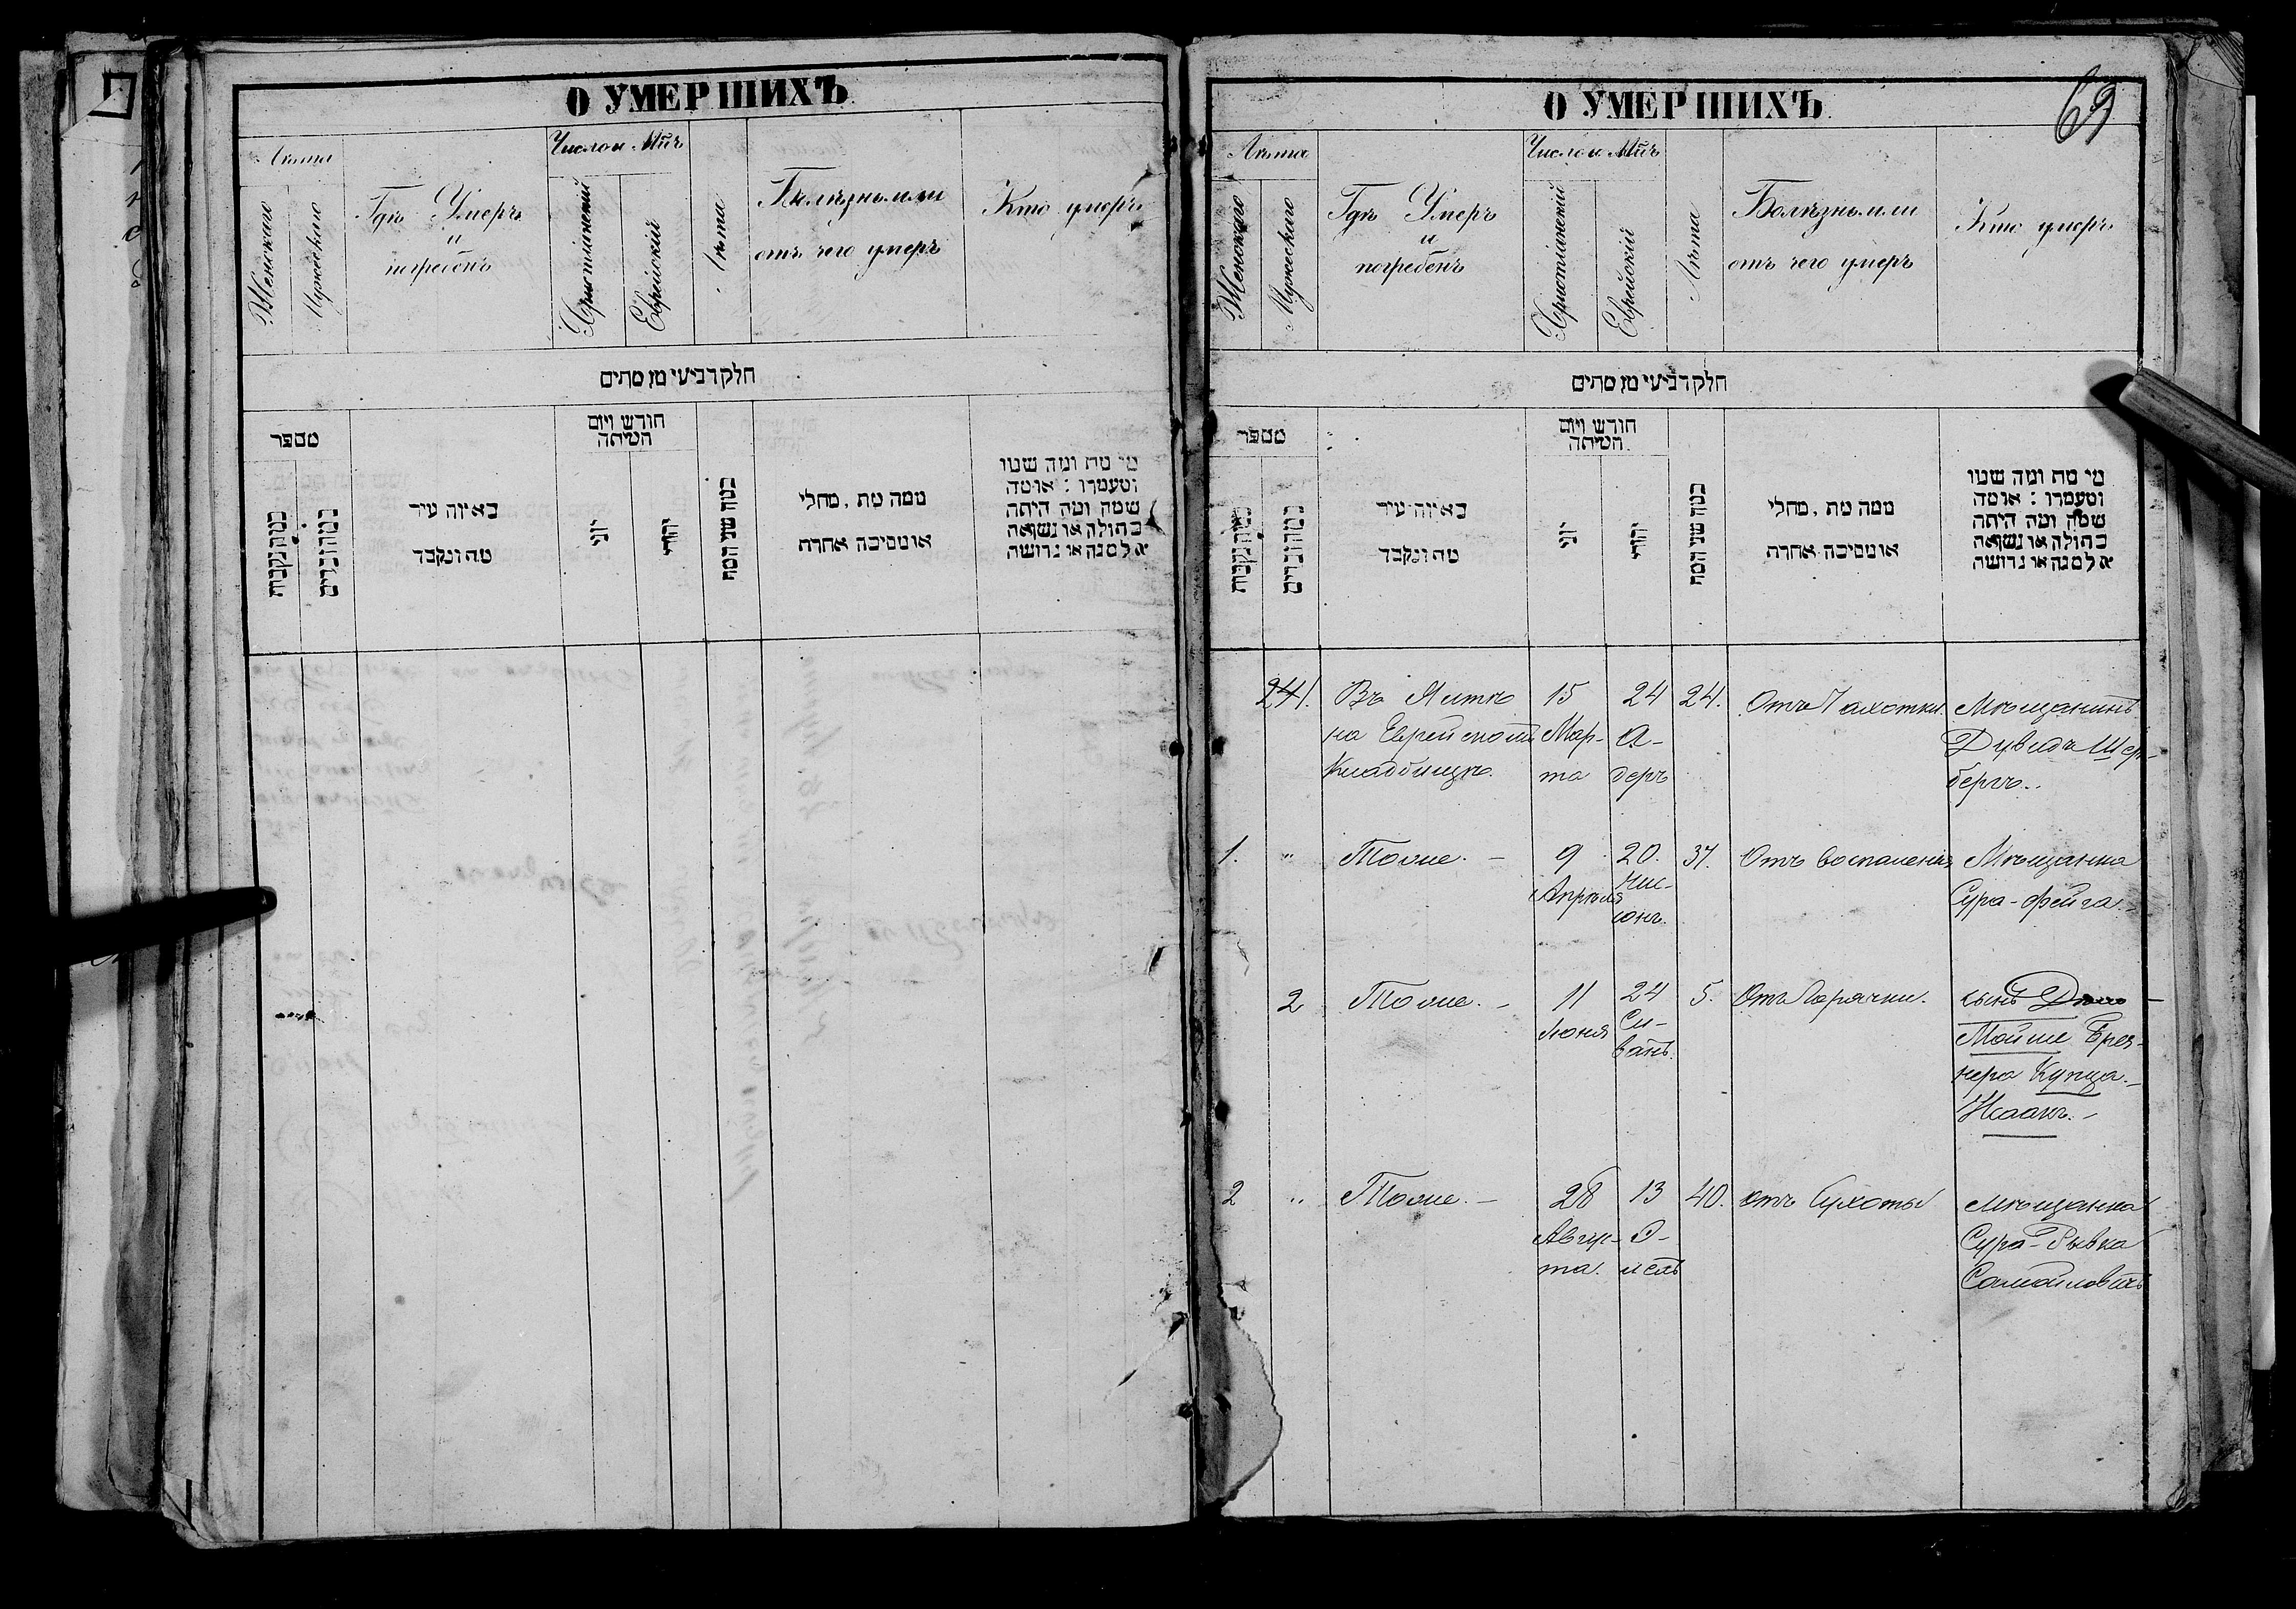 О УМЕРШИХЪ
Лѣта
Женскаго
Мужескаго
Гдѣ Умеръ
и
погребенъ
Число и Мѣц
Христіанскій
Еврейскій
Лѣта
Болѣзнь или
отъ чего умеръ
Кто умеръ
חלק רביעי מן מתים
מספר
במה נקבות
במה זכרים
באיזה עיר
מת ונקבר
חודש ויום
המיתה
יוני
יהודי
כמה שני המת
ממה מת, מחלי
או מסיבה אחרת
מי מת ומה שמו
ומעמדו : או מה
שמה ומה היתה
בתולה או נשואה
אלמנה או גרושה
О УМЕРШИХЪ
69
Лѣта
Женскаго
Мужескаго
Гдѣ Умеръ
и
погребенъ
Число и Мѣц
Христіанскій
Еврейскій
Лѣта
Болѣзнь или
отъ чего умеръ
Кто умеръ
חלק רביעי מן מתים
מספר
במה נקבות
במה זכרים
באיזה עיר
מת ונקבר
חודש ויום
המיתה
יוני
יהודי
כמה שני המת
ממה מת, מחלי
או מסיבה אחרת
מי מת ומה שמו
ומעמדו : או מה
שמה ומה היתה
בתולה או נשואה
אלמנה או גרושה
1. Въ Ялтѣ 15 24 24. Отъ Чахотки. Мѣщанинъ
на Еврейскомъ Мар- А- Дувидъ Шер-
Кладбищѣ. та деръ бергъ.
1. " Тоже. — 9 20. 37. Отъ воспаленія Мѣщанка
Апрѣля Нис- Сура-Фейга.
сонъ.
2 Тоже. — 11 24 5. Отъ Горячки. сынъ
Іюня Си- Мойше
ванъ. Купца
Исаакъ. —
2 " Тоже. — 28 13 40. отъ Сухоты Мѣщанка
Авгус- Э- Сура-Рывка
та. лель Самойловичъ